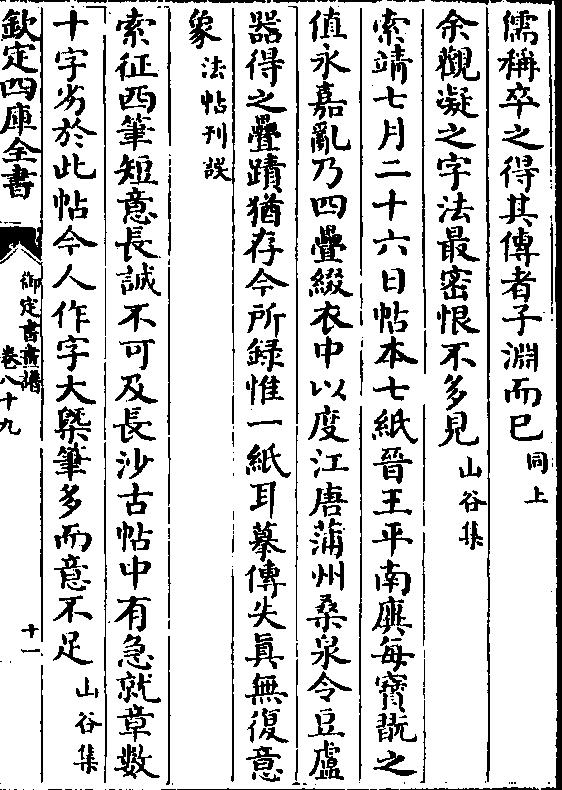 儒稱卒之得其傳者子淵而已同上
余觀凝之字法最密恨不多見山谷集
索靖七月二十六日帖本七紙晉王平南廙每寳翫之
值永嘉亂乃四疊綴衣中以度江唐蒲州桑泉令豆盧
器得之疊蹟猶存今所録惟一紙耳摹傳失眞無復意
象法帖刋誤
索征西筆短意長誠不可及長沙古帖中有急就章數
十字劣於此帖今人作字大槩筆多而意不足山谷集
欽定四庫全書
御定書畫譜
卷八十九
十一